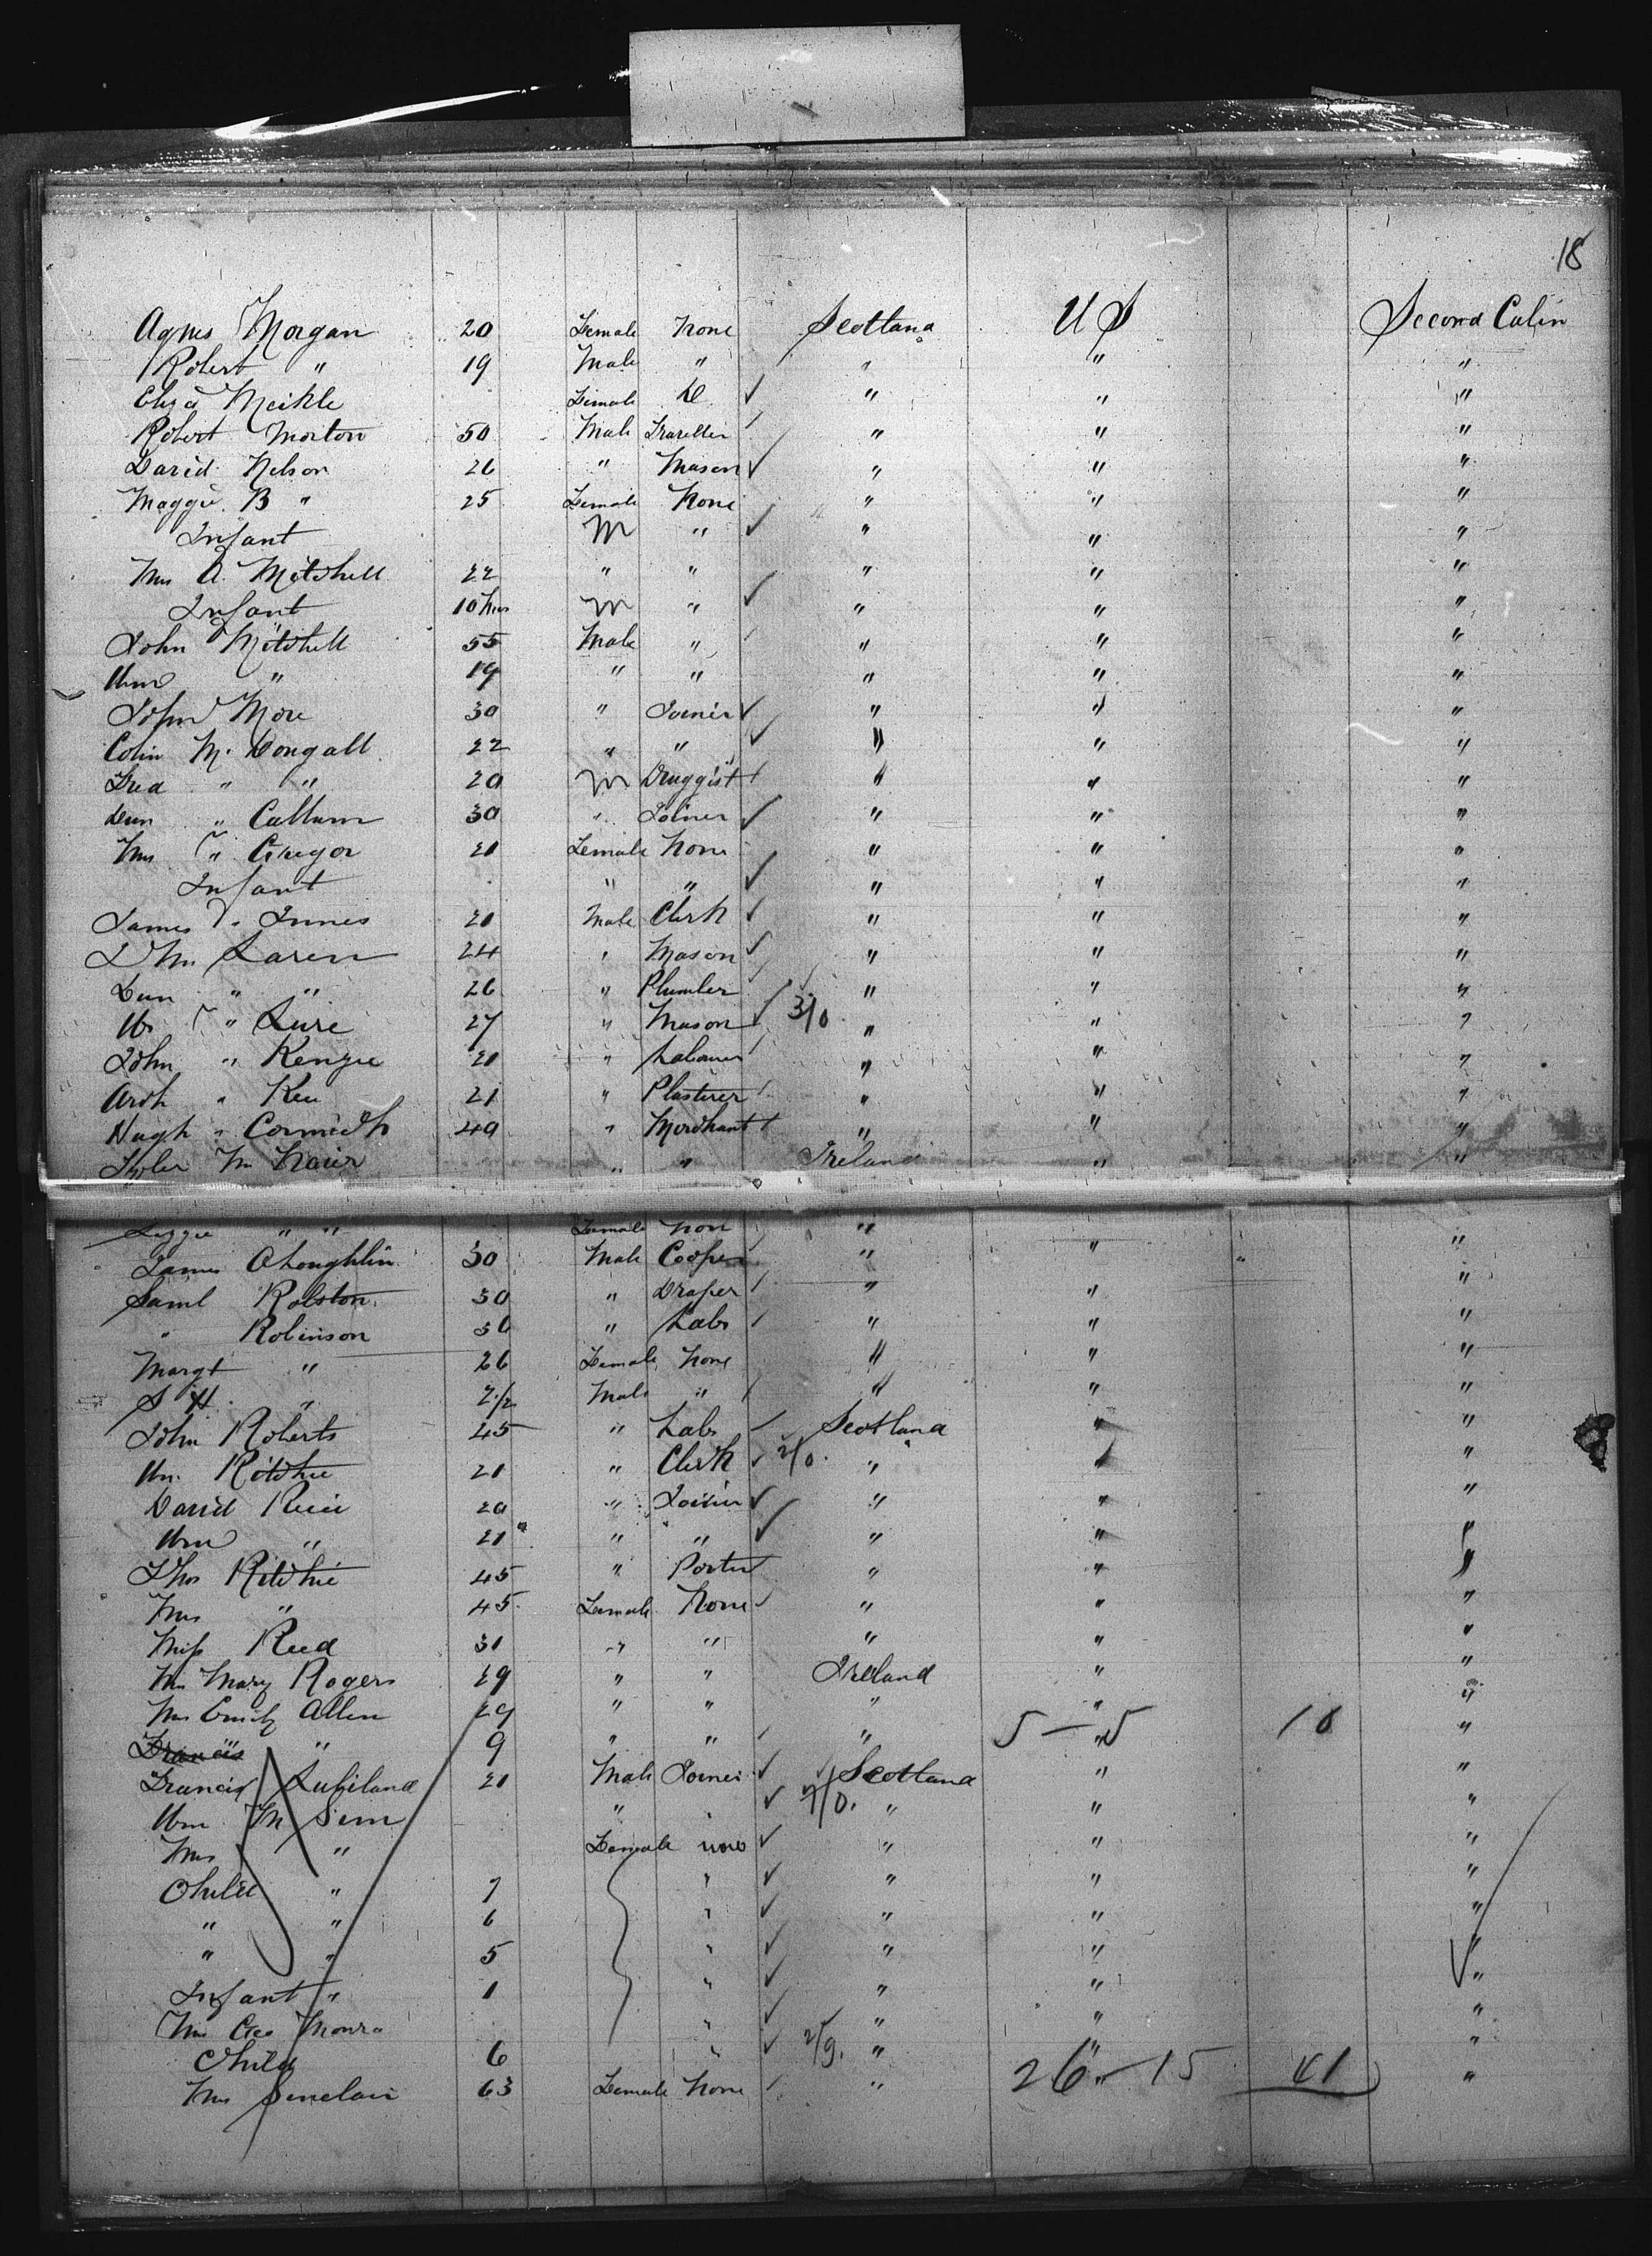 18
Agnes Morgan 20 Female None Scotland U S Second Cabin
Robert " 19 Male " " " "
Eliza Meikle Female Do " " "
Robert Morton 50 Male Traveller " " "
David Nelson 26 " Mason " " "
Maggie B " 25 Female None " " "
Infant M " " " "
Mrs A. Mitchell 22 " " " " "
Infant 10 Mos M " " " "
John Mitchell 55 Male " " " "
Wm " 19 " " " " "
John More 30 " Joiner " " "
Colin Mc Dougall 22 " " " " "
Fred " " 20 M Druggist " " "
Dun " Callum 30 " Joiner " " "
Mrs " Gregor 21 Female None " " "
Infant " " " " "
James Mc Innes 21 Male Clerk " " "
D Mc Laren 24 " Mason " " "
Dun " " 26 " Plumber " " "
" Lure 27 " Mason 3/0 " " "
John " Kenzie 21 " Labourer " " "
Arch " Kee 21 " Plasterer " " "
Hugh " Cormick 40 " Merchant " " "
Mc Nair " " Ireland " "
Lizzie " " Female Non " "
James OLoughlin 30 Male Cooper " " "
Saml Rolston 30 " Draper " " "
" Robinson 36 " Labr " " "
Margt " 26 Female None " " "
S H. " 2 1/2 Male " " " "
John Roberts 45 " Labr Scotland " "
Wm. Ritchie 21 " Clerk 2/0. " " "
David Reid 20 " Joiner " " "
Wm " 21 " " " " "
Thos Ritchie 45 " Porter " " "
Mrs " 45 Female None " " "
Miss Reed 31 " " " " "
Mrs Mary Rogers 29 " " Ireland " "
Mrs Emily Allen 29 " " " " "
Francis " 9 " " " 5 — 5 " 10 "
Francis 21 Male Joiner Scotland " "
Wm M Sim " " 7/0. " " "
Mrs " Female none " " "
Child " 7 " " " "
" " 6 " " " "
" " 5 " " " "
Infant " 1 " " " "
Mrs Geo Monro " " " "
Child 6 " 2/9. " " "
Mrs Sinclair 63 Female None " 26 " — 15 41 "